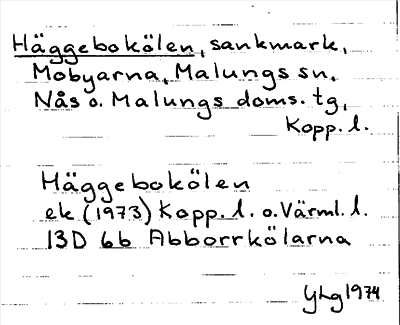 Häggebokölen, sankmark,
Mobyarna, Malungs sn,
Nås o. Malungs doms. tg,
Kopp. l.
Häggebokölen
ek (1973) Kopp. l. o. Värml. l.
13D 6b Abborrkölarna
YLg 1974